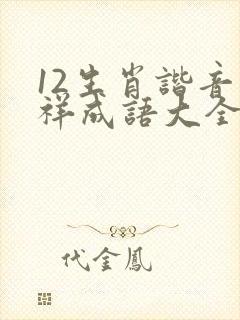 12生肖諧音
祥成語大全
代金鳳